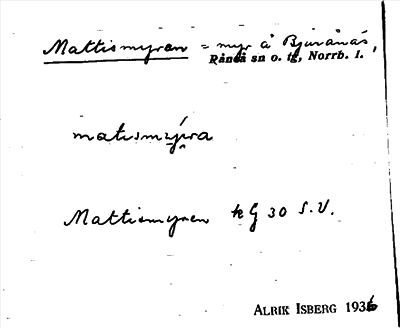 Mattismyren = myr å Bjurånäs,
Råneå sn o. tg, Norrb. l.
matismýra
Mattismyren kG 30 S.V.
ALRIK ISBERG 1936